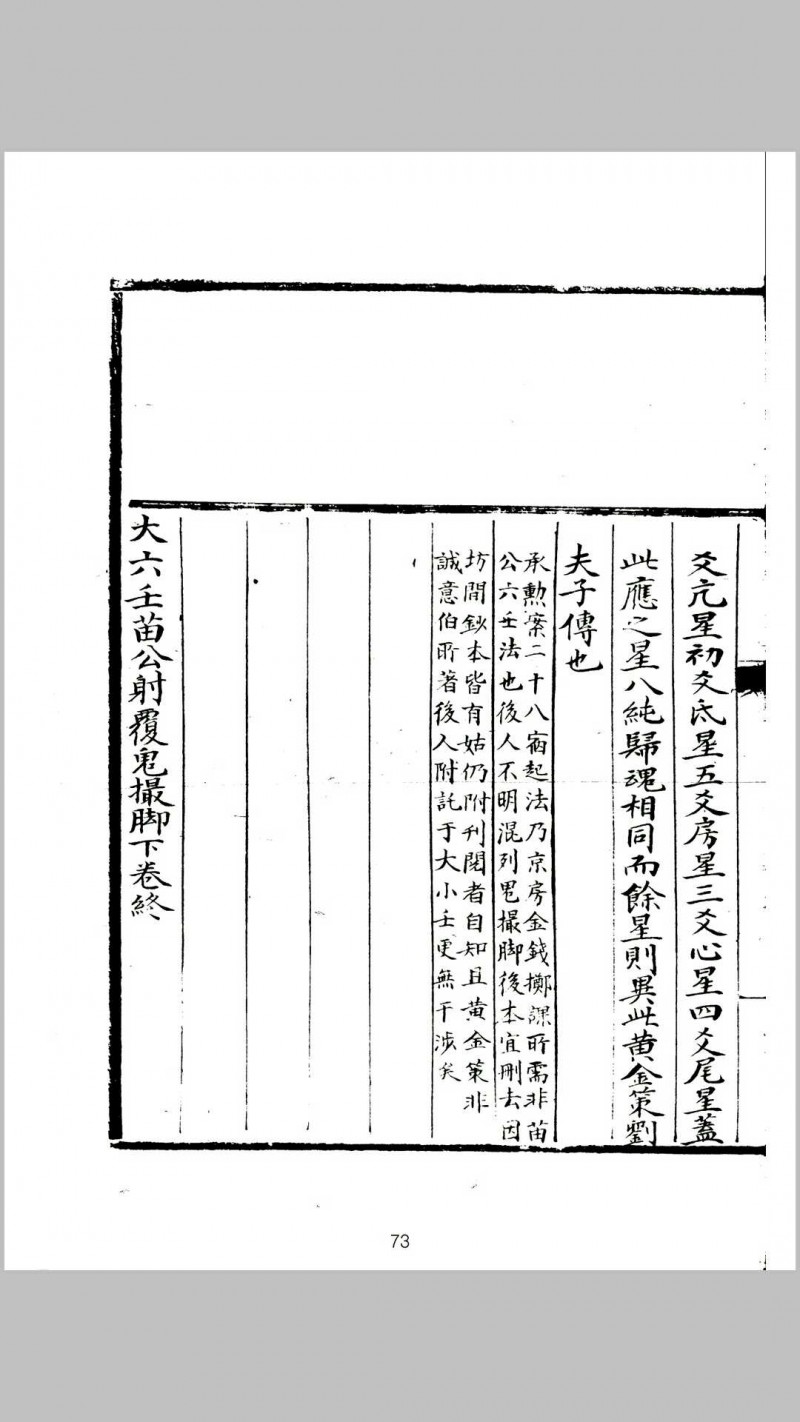 爻亢星初爻氐星五爻房星三爻心星四爻尾星蓋
此應之星八純歸魂相同而餘星則異此黃金策劉
夫子傳也
承勲案二十八宿起法乃京房金錢擲課所需非苗
公六壬法也後人不明混列鬼撮脚後本宜刪去因
坊間鈔本皆有姑仍附刊閱者自知且黃金策非
誠意伯所著後人附託于大小壬更無干涉矣
大六壬苗公射覆鬼撮脚下卷終
73